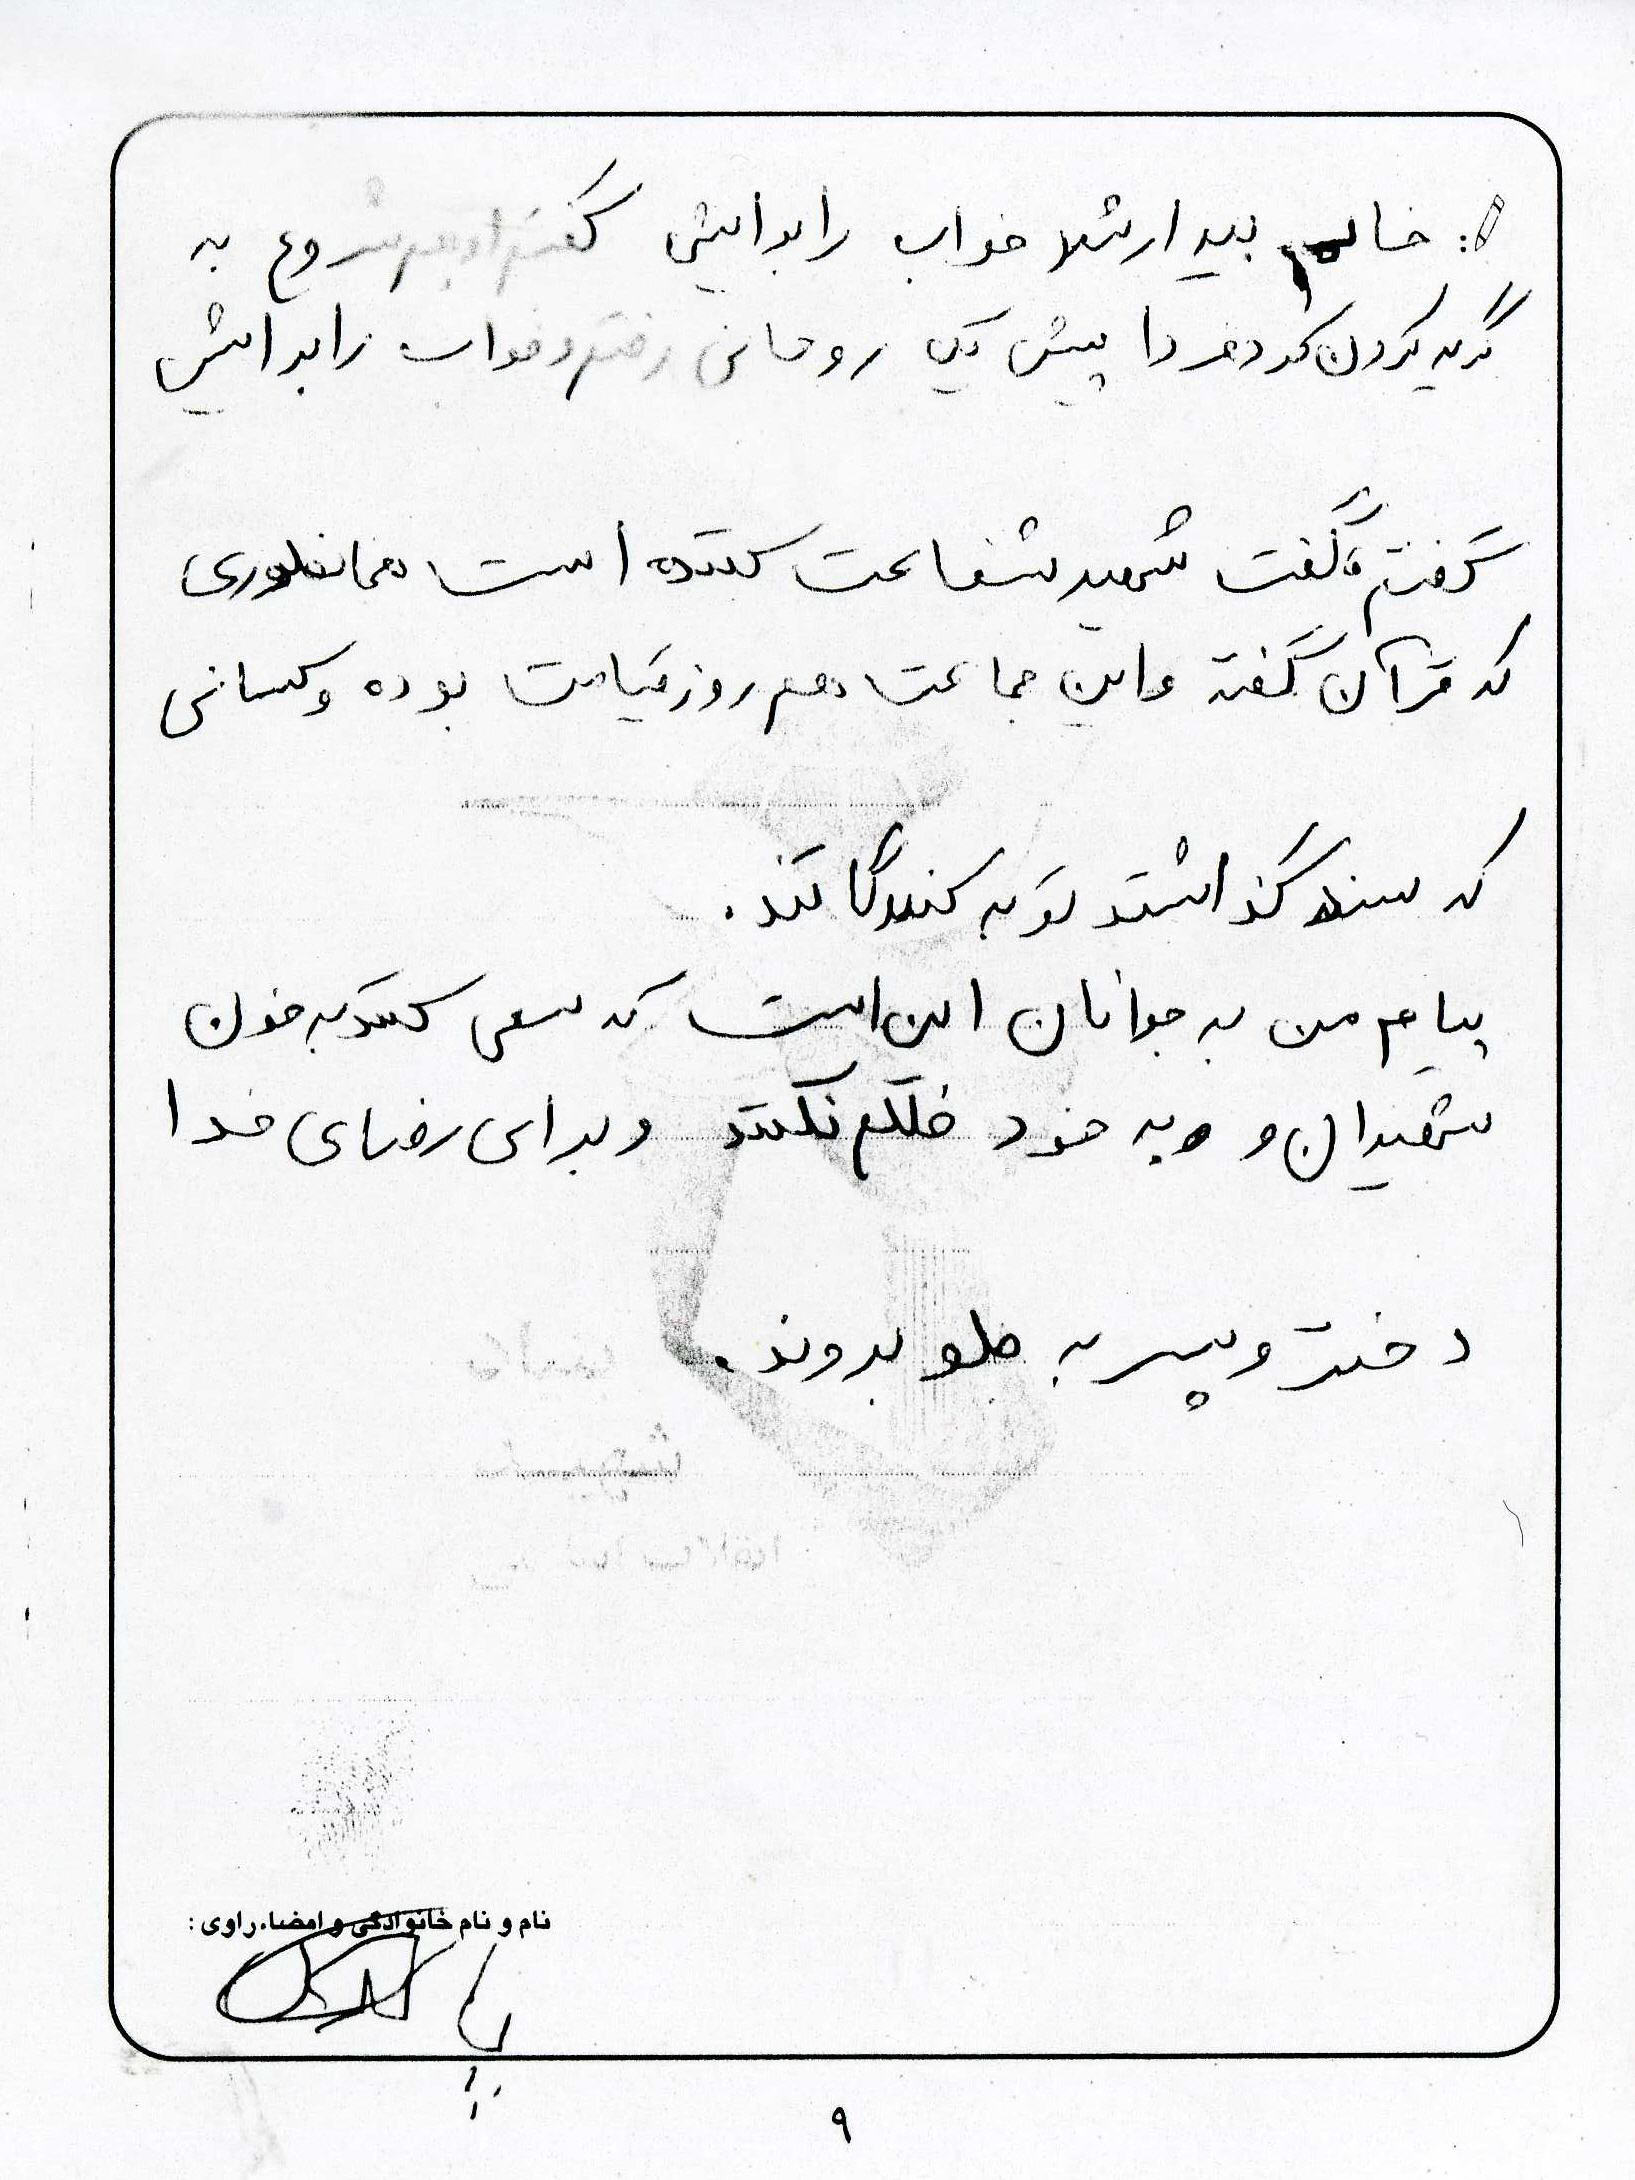 خالم بیدار شد خواب را برایش گفتم او هم شروع به
گریه کردن کرد فردا پیش یک روحانی رفتم و خواب را برایش
گفتم گفت شهید شفاعت کننده است همانطوری
که قرآن گفته و این جماعت هم روز قیامت بوده و کسانی
که گذاشتند توبه کنندگانند.
پیام من به جوانان این است که سعی کنند به خون
شهیدان و به خود ظلم نکنند و برای رضای خدا
دختر و پسر به جلو بروند.
نام و نام خانوادگی و امضاء راوی:
۹